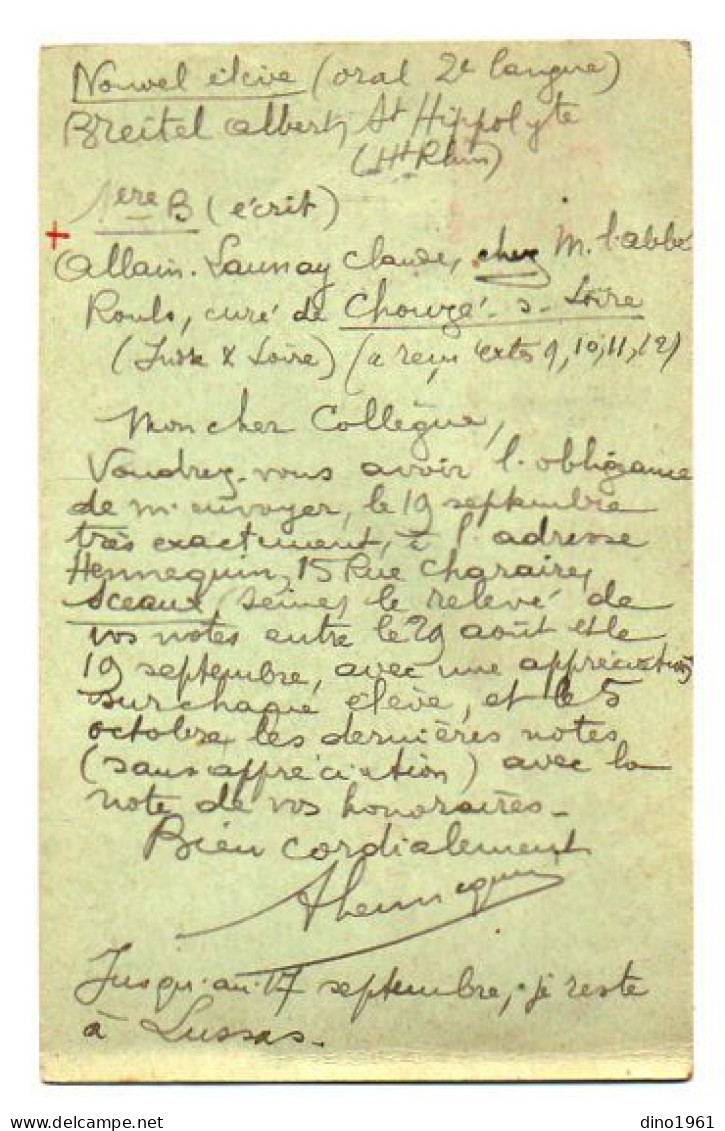 Nouvel élève (oral 2e langue)
Breitel Albert, St Hippolyte
(Ht Rhin)
1ère B (écrit)
+
Allain-Launay Claude, chez M. l'abbé
Roulo, curé de Chouzé-s-Loire
(Indre & Loire) (a reçu textes 9, 10, 11, 12)
Mon cher Collègue,
Voudrez-vous avoir l'obligeance
de m'envoyer, le 19 septembre
très exactement, à l'adresse
Hennequin, 15 Rue Charaire,
Sceaux, (Seine) le relevé de
vos notes entre le 29 août et le
19 septembre, avec une appréciation
sur chaque élève, et le 5
octobre les dernières notes
(sans appréciation) avec la
note de vos honoraires-
Bien cordialement
AHennequin
Jusqu'au 17 septembre, je reste
à Lussas-
dino1961